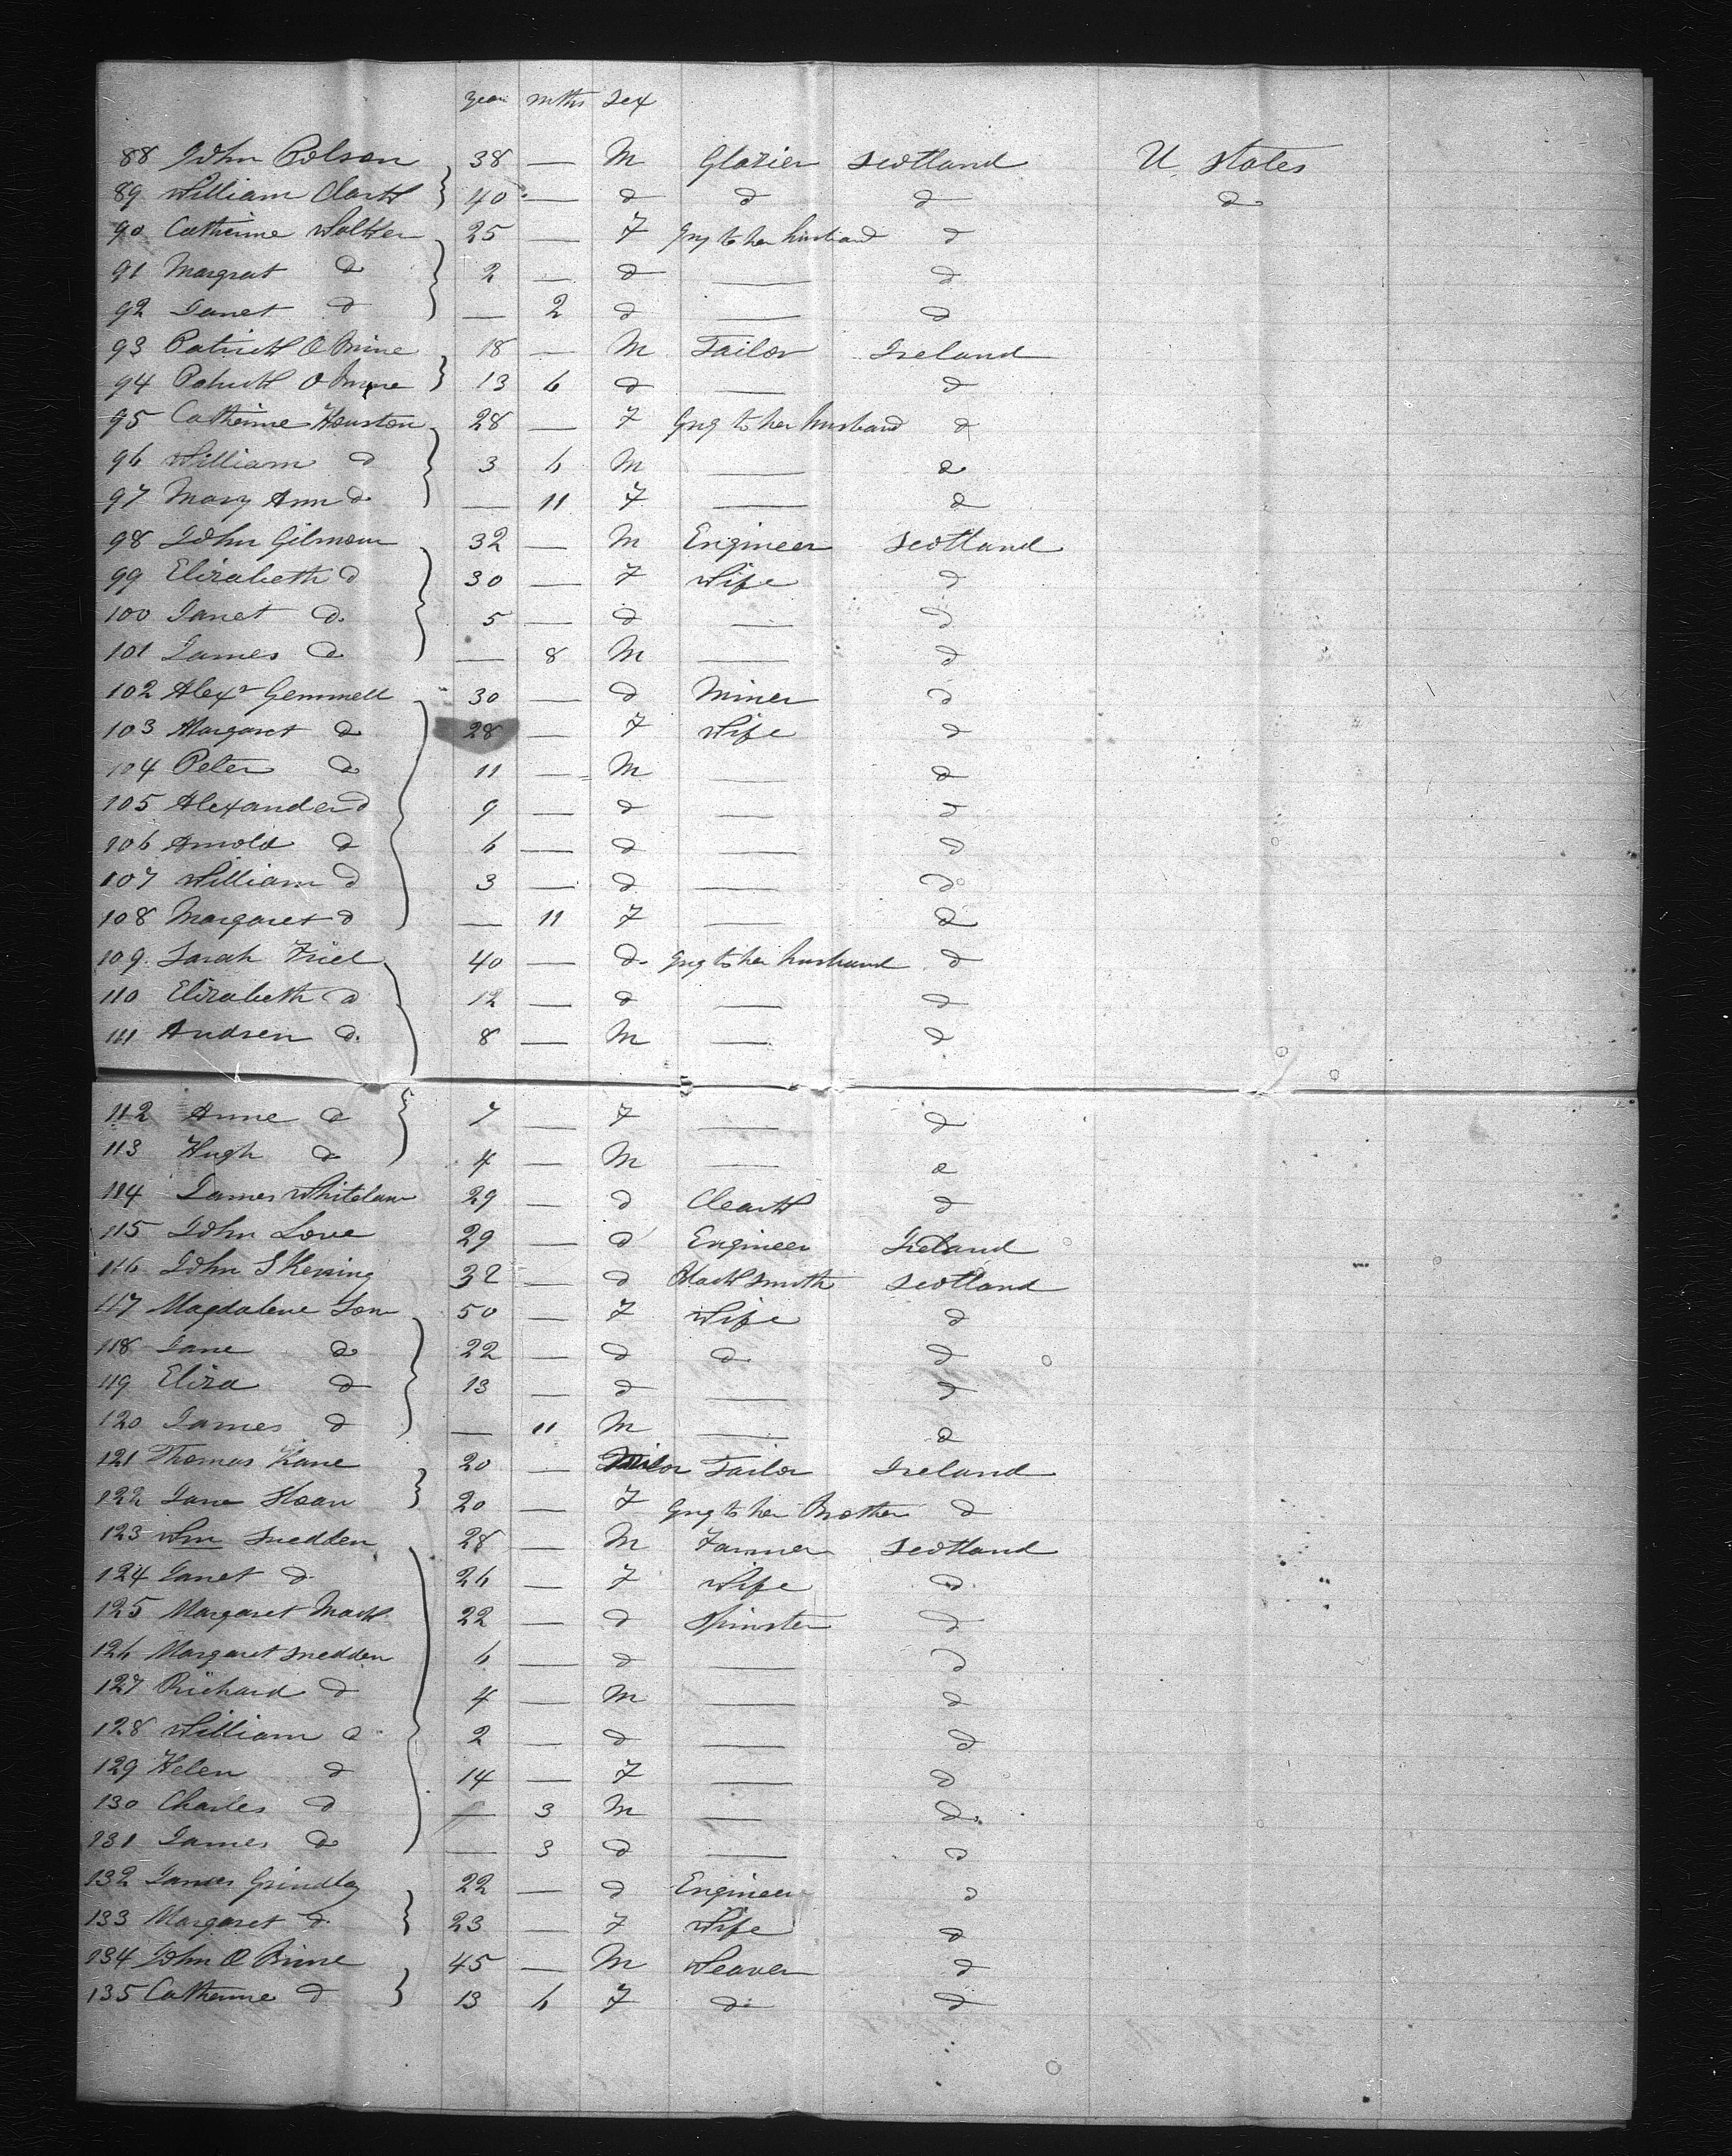 year mths sex
88 John Polson 38 — M Glazier Scotland U. States
89 William Clark 40 — d d d d
90 Catherine Walker 25 — F Gng to her husband d
91 Margrat d 2 — d — d
92 Janet d — 2 d — d
93 Patrick O Brine 18 — M Tailor Ireland
94 Patrick O Brine 13 6 d — d
95 Catherine Houston 28 — F Gng to her husband d
96 William d 3 6 M — d
97 Mary Ann d — 11 F — d
98 John Gilmour 32 — M Engineer Scotland
99 Elizabeth d 30 — F Wife d
100 Janet d 5 — d — d
101 James d — 8 M — d
102 Alexr Gemmell 30 — d Miner d
103 Margaret d 28 — F Wife d
104 Peter d 11 — M — d
105 Alexander d 9 — d — d
106 Arnold d 6 — d — d
107 William d 3 — d — d
108 Margaret d — 11 F — d
109 Sarah Friel 40 — d Gng to her husband d
110 Elizabeth d 12 — d — d
111 Andrew d 8 — M — d
112 Anne d 7 — F — d
113 Hugh d 4 — M — d
114 James Whitelaw 29 — d Cleark d
115 John Love 29 — d Engineer Ireland
116 John Skening 32 — d Blacksmith Scotland
117 Magdalene 50 — F Wife d
118 Jane d 22 — d d d
119 Eliza d 13 — d — d
120 James d — 11 M — d
121 Thomas Kane 20 — Tailor Ireland
122 Jane Sloan 20 — F Gng to her Brother d
123 Wm Snedden 28 — M Farmer Scotland
124 Janet d 26 — F Wife d
125 Margaret Mack 22 — d Spinster d
126 Margaret Snedden 6 — d — d
127 Richard d 4 — M — d
128 William d 2 — d — d
129 Helen d 14 — F — d
130 Charles d — 3 M — d
131 James d — 3 d — d
132 James Grindlay 22 — d Engineer d
133 Margaret d 23 — F Wife d
134 John O Brine 45 — M Weaver d
135 Catherine d 13 6 F d d